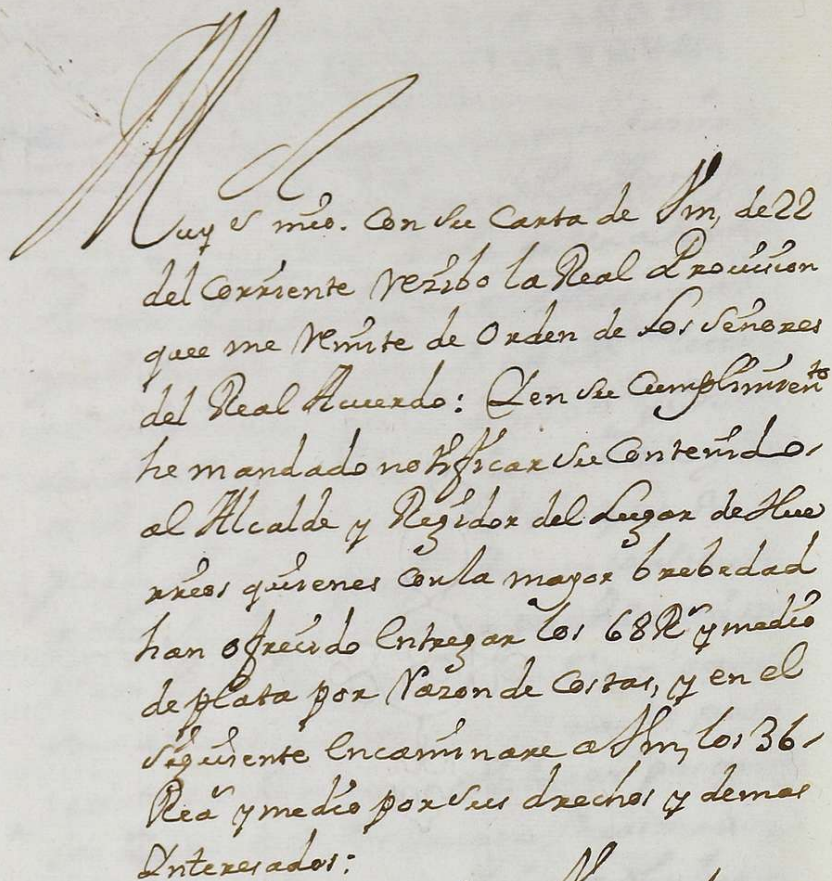 Muy S mio. Con su Carta de Vm, de 22
del Corriente rezibo la Real Provicion
que me remite de Orden de Los Señores
del Real Acuerdo: Y en su Cumplimiento
he mandado notificar su Contenido
al Alcalde y Regidor del Lugar de Hue
rreos quienes con la mayor brebedad
han ofrecido Entregar los 68 Rs y medio
de plata por razon de Costas, y en el
siguiente Encaminare a Vm, los 36
Rea y medio por sus drechos y demas
Ynteresados: